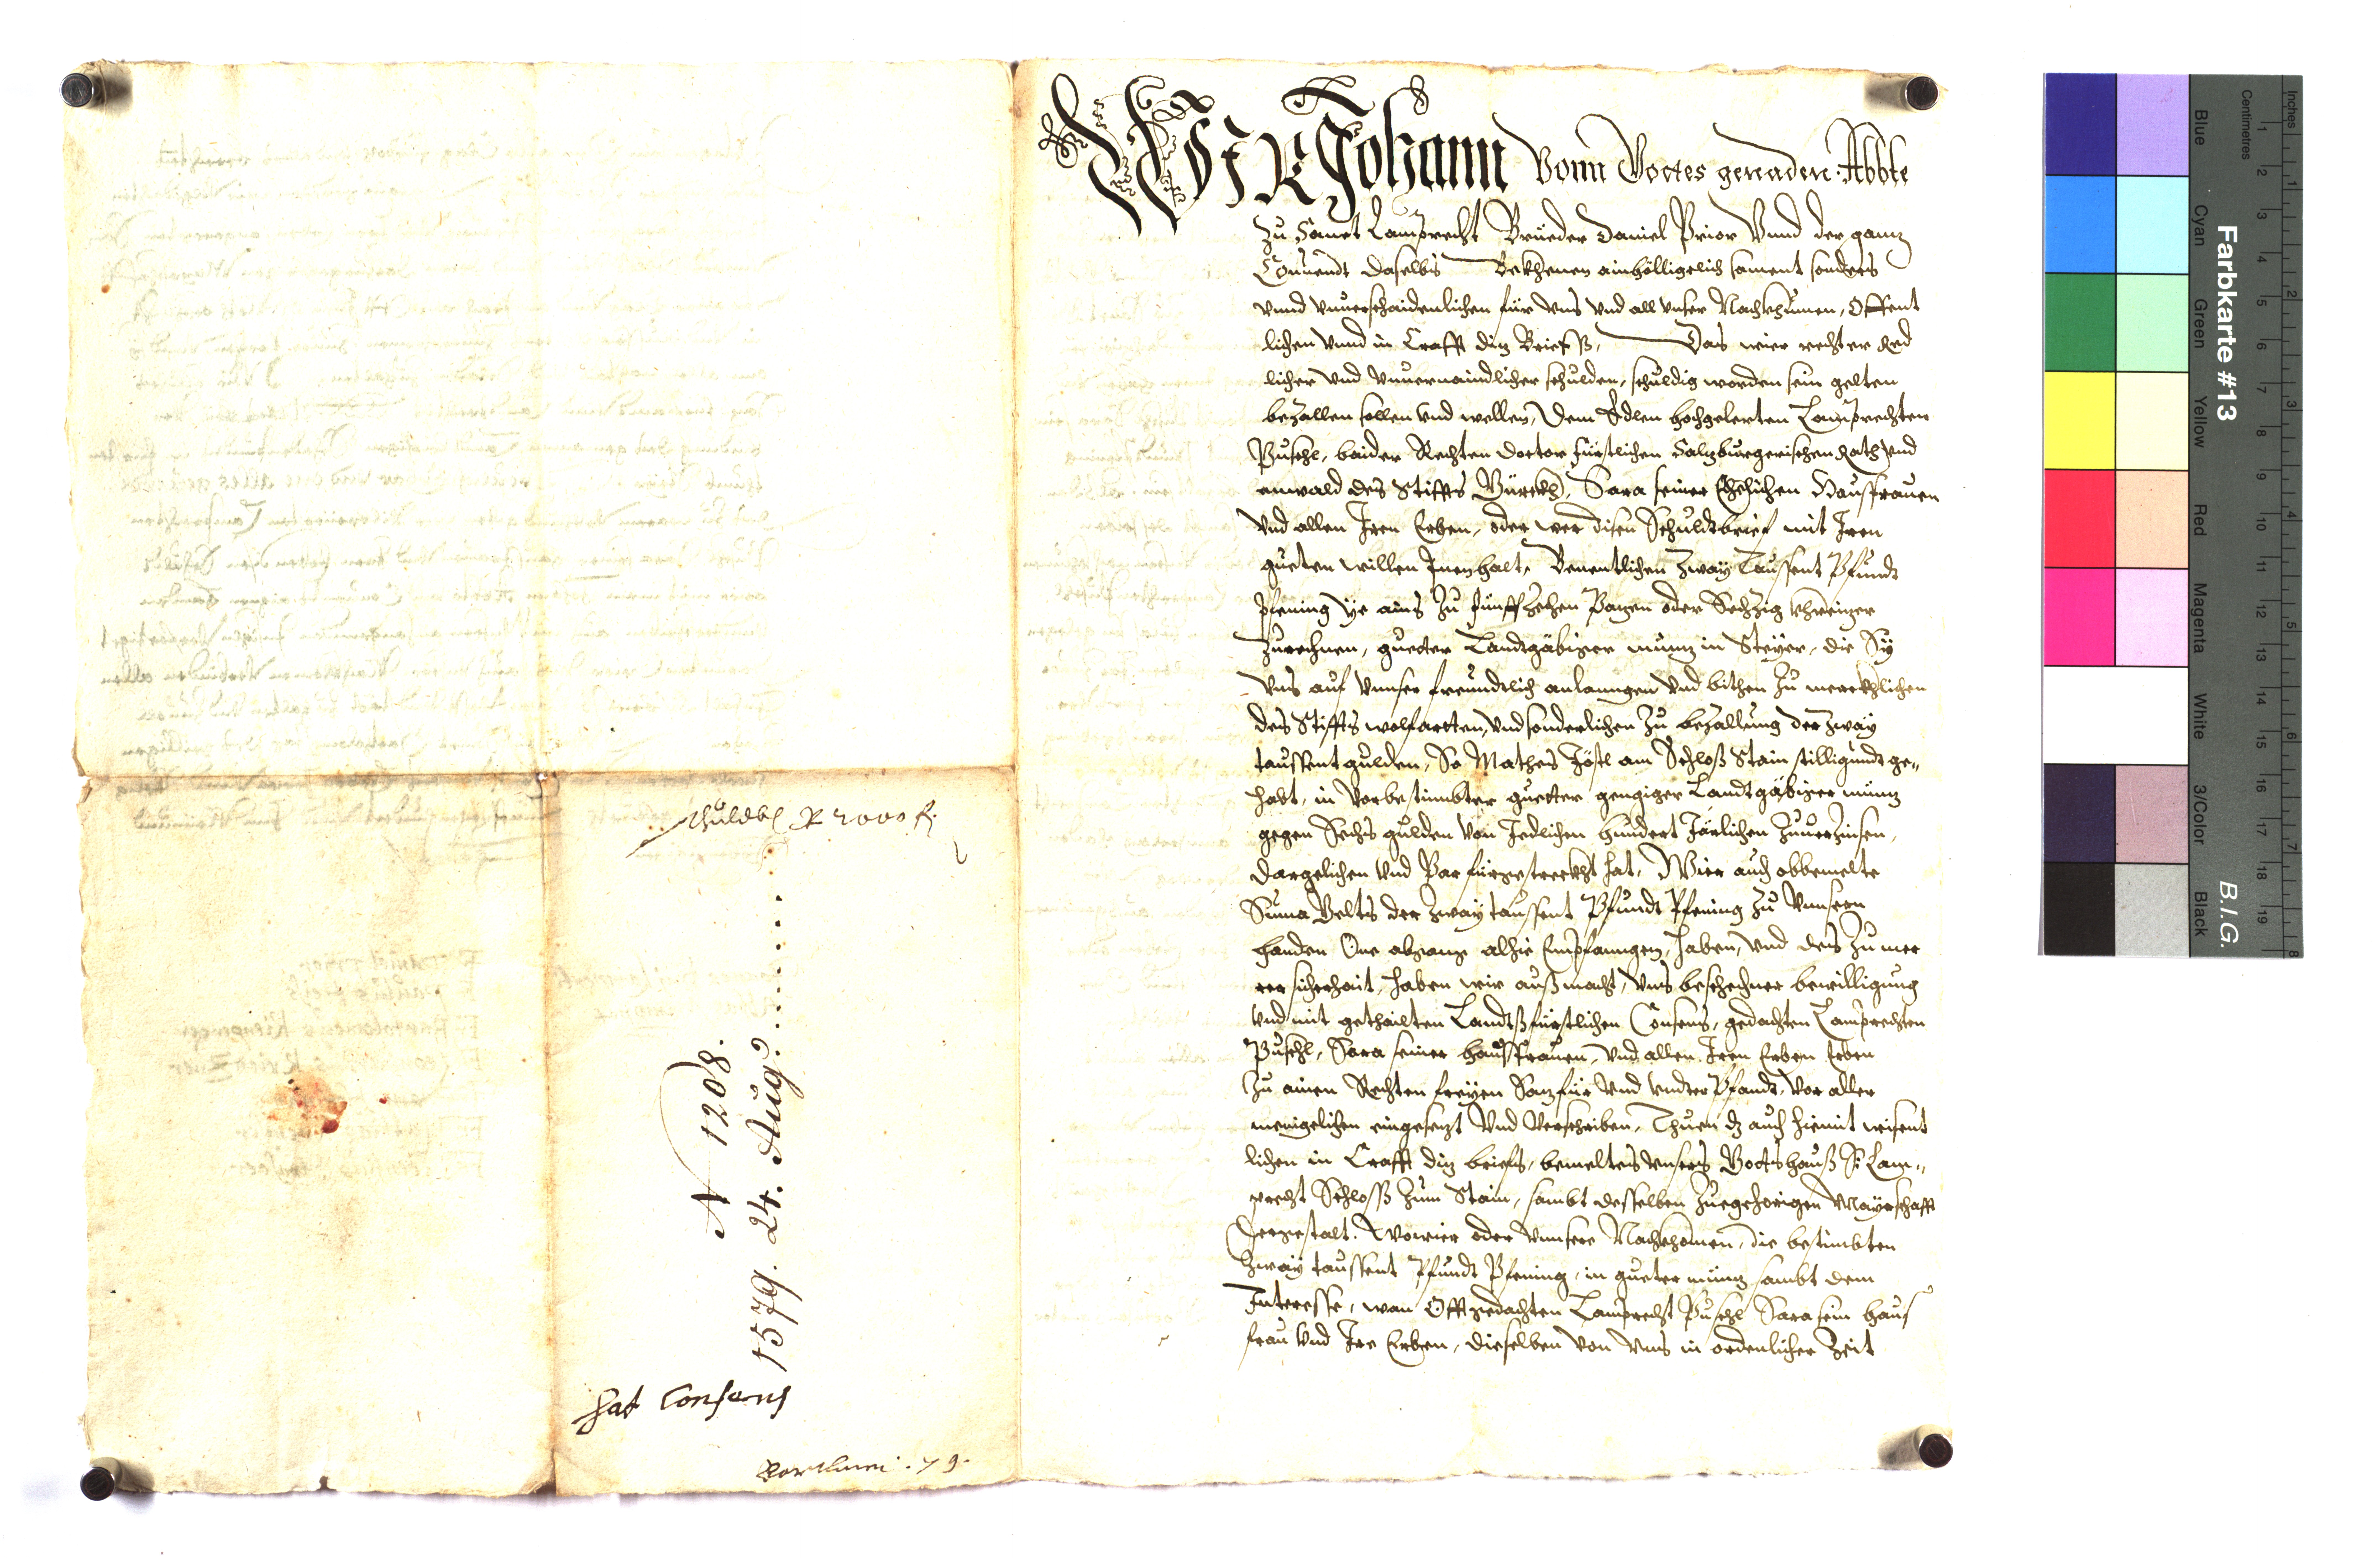 WIR Johann Vonn Gottes genaden Abbte
Zu Sanct Lamprecht Brueder Daniel Prior Vnnd der ganz
Conuendt daselbs Bekhenen ainhölligelich sament sonders
vnnd vnuerschaidenlichen für vns vnd all vnser Nachkhumen, Offent
lichen vnnd in Crafft diz Brieffs, Das wier rechter Red
licher vnd vnuermaindlicher schulden, schuldig worden sein gelten
bezallen sollen vnd wellen, Dem Edlen hochgelerten Lamprechten
Puschl, baider Rechten doctor fürstlichen Salzburgerischen Rath vnd
anwald des Stiffts Gürckh, Sara seiner Ehelichen Hausfrauen
vnd allen Iren Erben, oder wer disen Schuldtbrief mit Iren
gueten willen Innenhalt, Benentlichen Zway Taussent Pfundt
pfening ye ains zu funffzehen Pazen oder Sechzig khreizer
zurechnen, gueter Landtgäbiger münz in Steyer, die Sy
vns auf vnnser freundtlich anlanngen vnd bithen zu merckhlichen
des Stiffts wolfartten, vnd sonderlichen zu bezallung der zway
taussent gulden, So Mathes Jöstl am Schloß Stain stilligundt ge„
habt, in vorbestimbter guetter gengiger Landtgäbiger münz
gegen Sechs gulden von Jedlichen hundert Järlichen zuuerzinsen,
dargelichen vnd Par fürgestreckht hat, Wier auch obbemelte
Suma Gelts der zway taussent Pfundt Pfening zu vnnsern
handen One abganz alhie Empfanngen, haben, vnd des zu mer
rer sicherhait, haben wir auß macht, vns beschehner bewilligung
vnd mit gethailten Landtßfürstlichen Consens, gedachten Lamprechten
Puschl, Sara seiner hausfrauen, vnd allen Iren Erben Erben
zu ainen Rechten freyen Saz für vnd vndter Pfandt, vor aller
menigelichen eingesezt vnd Verschriben, Thuen dz auch hiemit wisent
lichen in Crafft diz briefs, bemeltes vnsers Gottshauß St Lam„
precht Schloß zum Stain, sambt desselben zuegehorigen Mayrschafft
dergestalt. Wo wier oder vnnsere Nachkhomen, die bestimbten
zway taussent Pfundt Pfening, in gueter münz sambt dem
Interesse, wan Offtgedachten Lamprecht Puschl Sara sein haus
frau vnd Ire Erben, dieselben von vns in ordenlicher Zeit
2000 f.
N 1208.
1579. 24. Aug:
hat Consens
79.
Farbkarte #13
B.I.G.
Inches
Centimetres
1 2 3 4 5 6 7 8
1 2 3 4 5 6 7 8 9 10 11 12 13 14 15 16 17 18 19
Blue Cyan Green Yellow Red Magenta White 3/Color Black